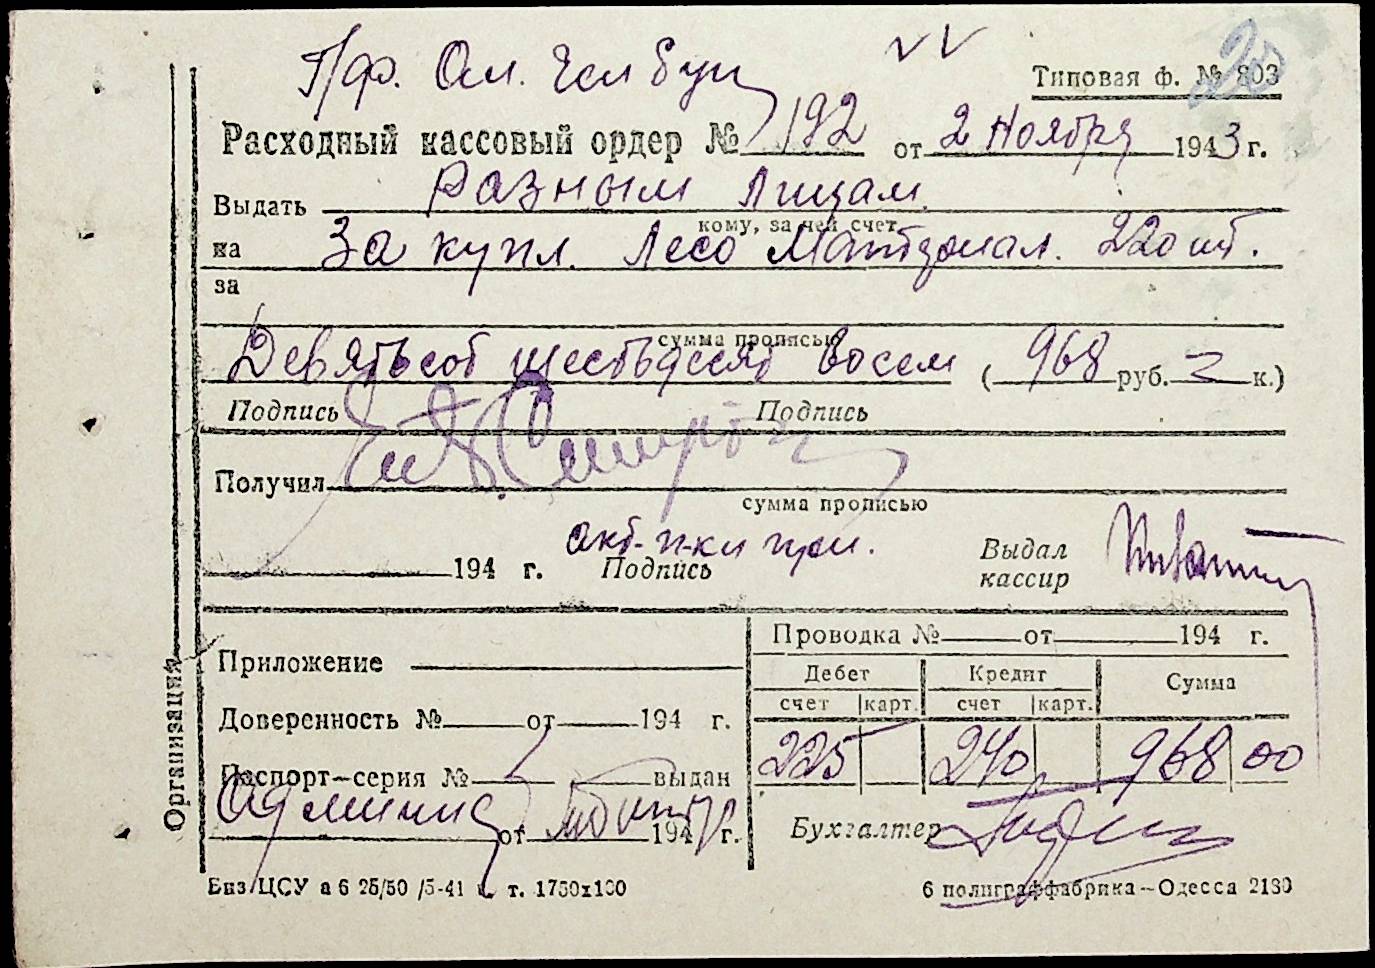 Типовая ф. № 803
20
Расходный кассовый ордер № 192 от 2 Ноября 1943 г.
Выдать Разным лицам
кому, за чей счет
на За купл. Лесо Матерьял. 220 шт.
за
сумма прописью
Девятьсот шестьдесят восем ( 968 руб. к.)
Подпись Подпись
Получил
сумма прописью
194 г. Подпись Выдал кассир
Приложение
Доверенность № от 194 г.
Паспорт—серия № выдан
от 194 г.
Организация
Проводка № от 194 г.
Дебет Кредит Сумма
счет карт. счет карт.
225 240 968 00
Бухгалтер
Биз ЦСУ а 6 25/50 /5-41 г. т. 1750х100
6 полиграффабрика—Одесса 2180